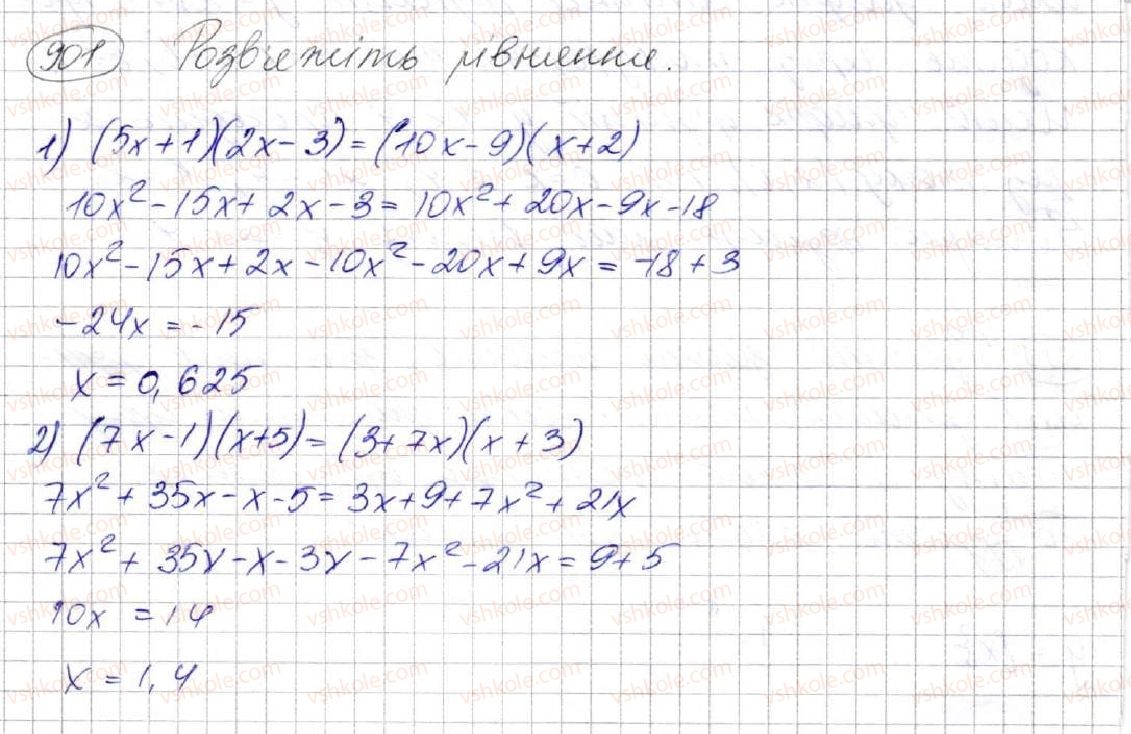 901 Розв'яжіть рівняння.
1) (5x+1)(2x-3)=(10x-9)(x+2)
10x²-15x+2x-3=10x²+20x-9x-18
10x²-15x+2x-10x²-20x+9x=-18+3
-24x=-15
x=0,625
2) (7x-1)(x+5)=(3+7x)(x+3)
7x²+35x-x-5=3x+9+7x²+21x
7x²+35x-x-3x-7x²-21x=9+5
10x=14
x=1,4